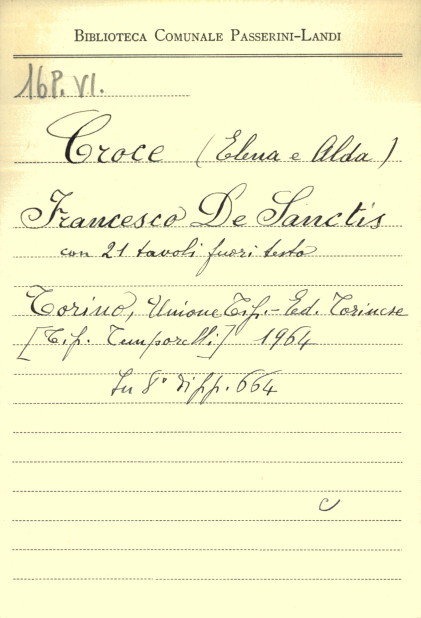 BIBLIOTECA COMUNALE PASSERINI-LANDI
16P.VI.
Croce (Elena e Alda)
Francesco De Sanctis
con 21 tavoli fuori testo
Torino, Unione Tip.-Ed. Torinese
[Tip. Temporelli] 1964
In 8° di pp. 664
C